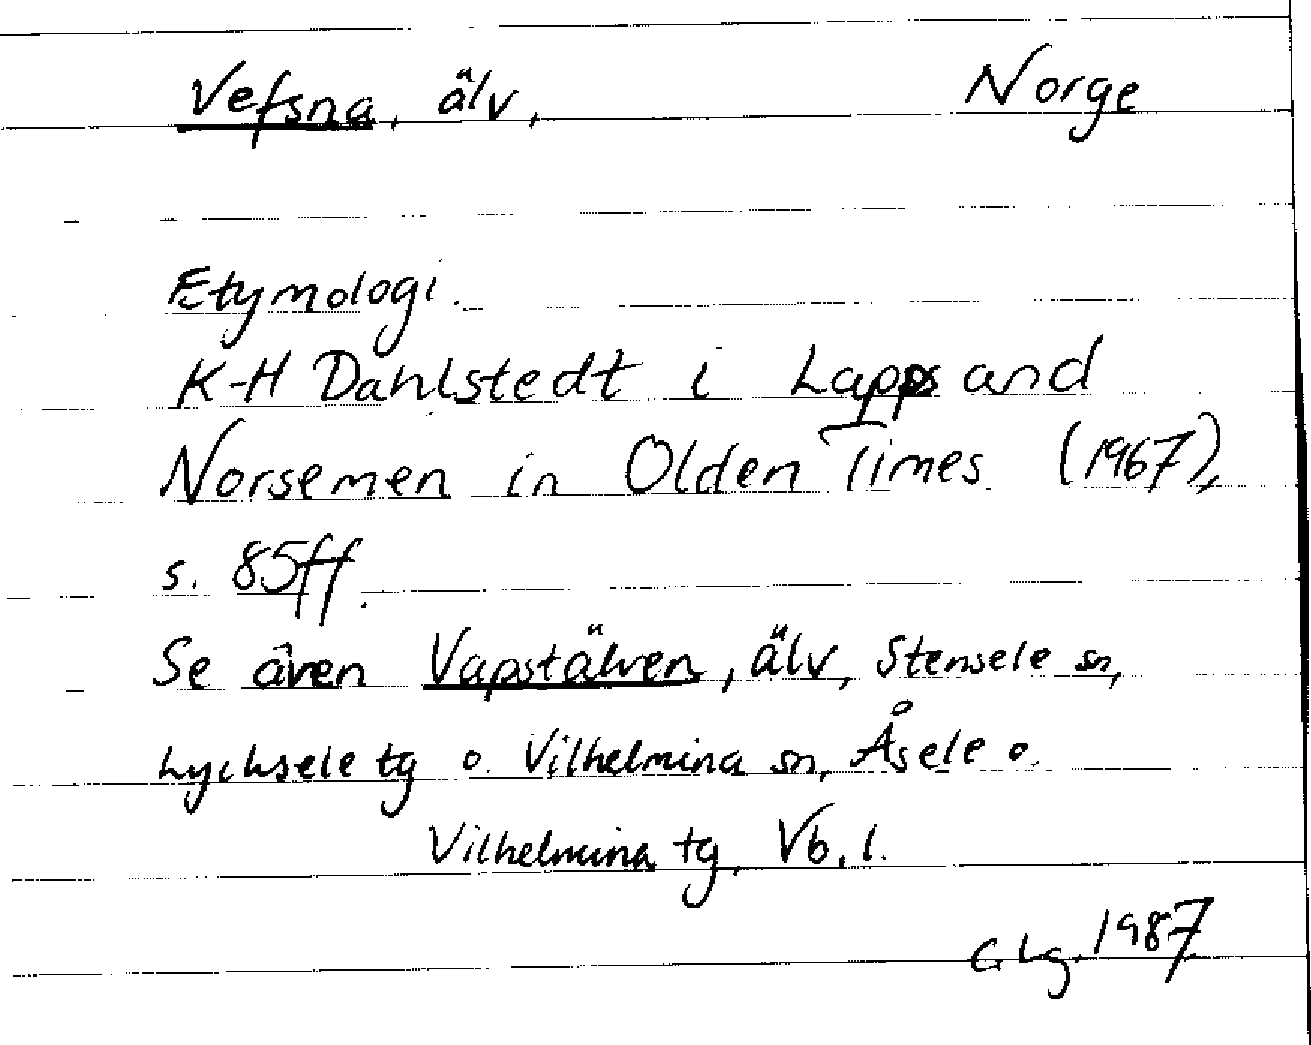 Vefsna, älv, Norge
Etymologi.
K-H Dahlstedt i Lapps and
Norsemen in Olden Times (1967),
s. 85ff.
Se även Vapstälven, älv, Stensele sn,
Lycksele tg o. Vilhelmina sn, Åsele o.
Vilhelmina tg, Vb. l.
G Lg. 1987